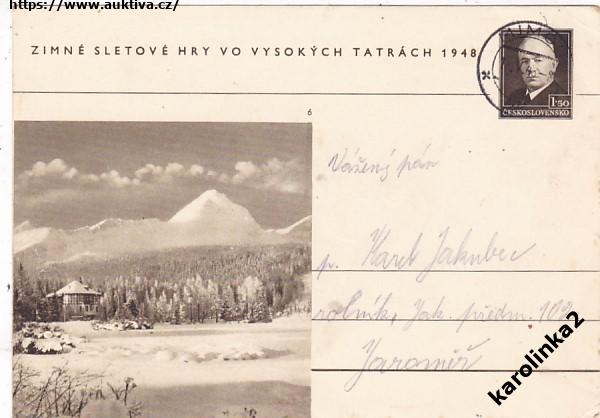 https://www.auktiva.cz/
ZIMNÉ SLETOVÉ HRY VO VYSOKÝCH TATRÁCH 1948
1·50
ČESKOSLOVENSKO
6
Vážený pán
p. Karel Jakubec
rolník, Jak. předm. 102
Jaroměř
karolinka2